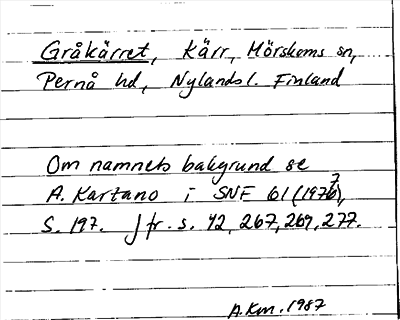 Gråkärret, Kärr, Mörskoms sn,
Pernå hd, Nylands l. Finland
Om namnets bakgrund se
A. Kartano i SNF 61 (1977),
S. 197. Jfr. s. 42, 267, 269, 277.
A.Km. 1987